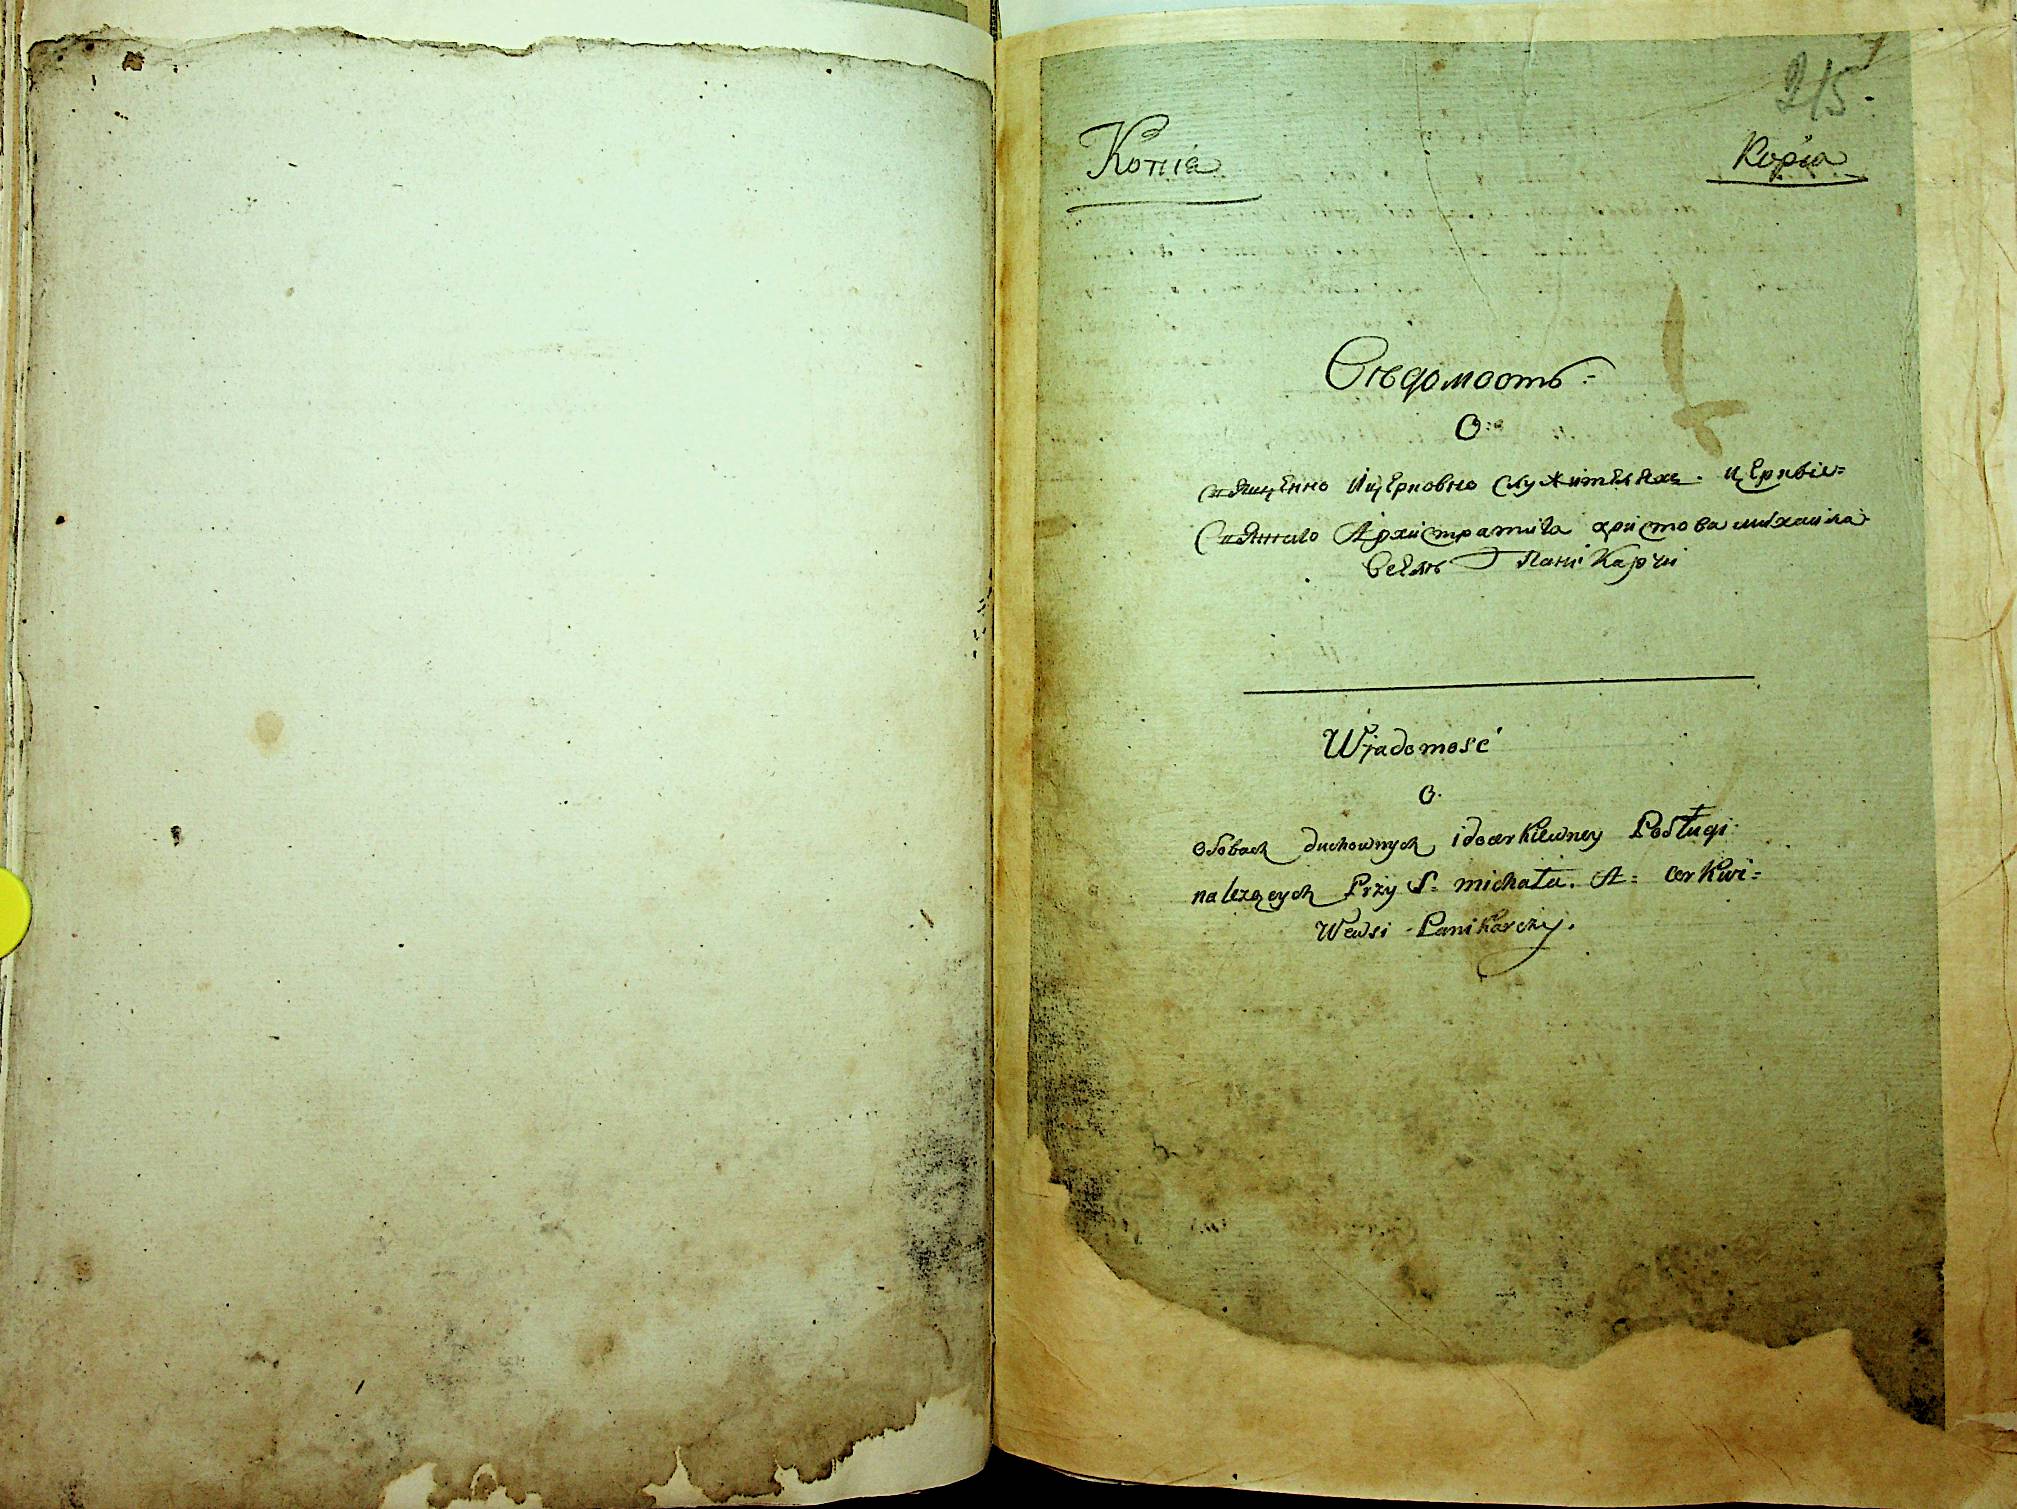 215
Копіа
Kopia
Свѣдомость:
О:
священно ицерковно служителяхъ. церквіи=
святаго Архистратига христова михаила
Всемъ Паникарчи
Wjadomość
O.
osobach duchownych i docerkiewney Posługi
należących Przy S: michała. A: cerkwi=
Wewsi Panikarczy.